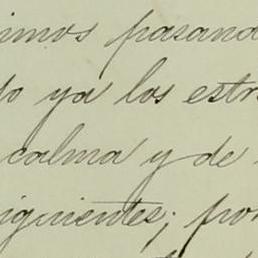 imos pasand
o ya los estr
calma y de
iguientes; por